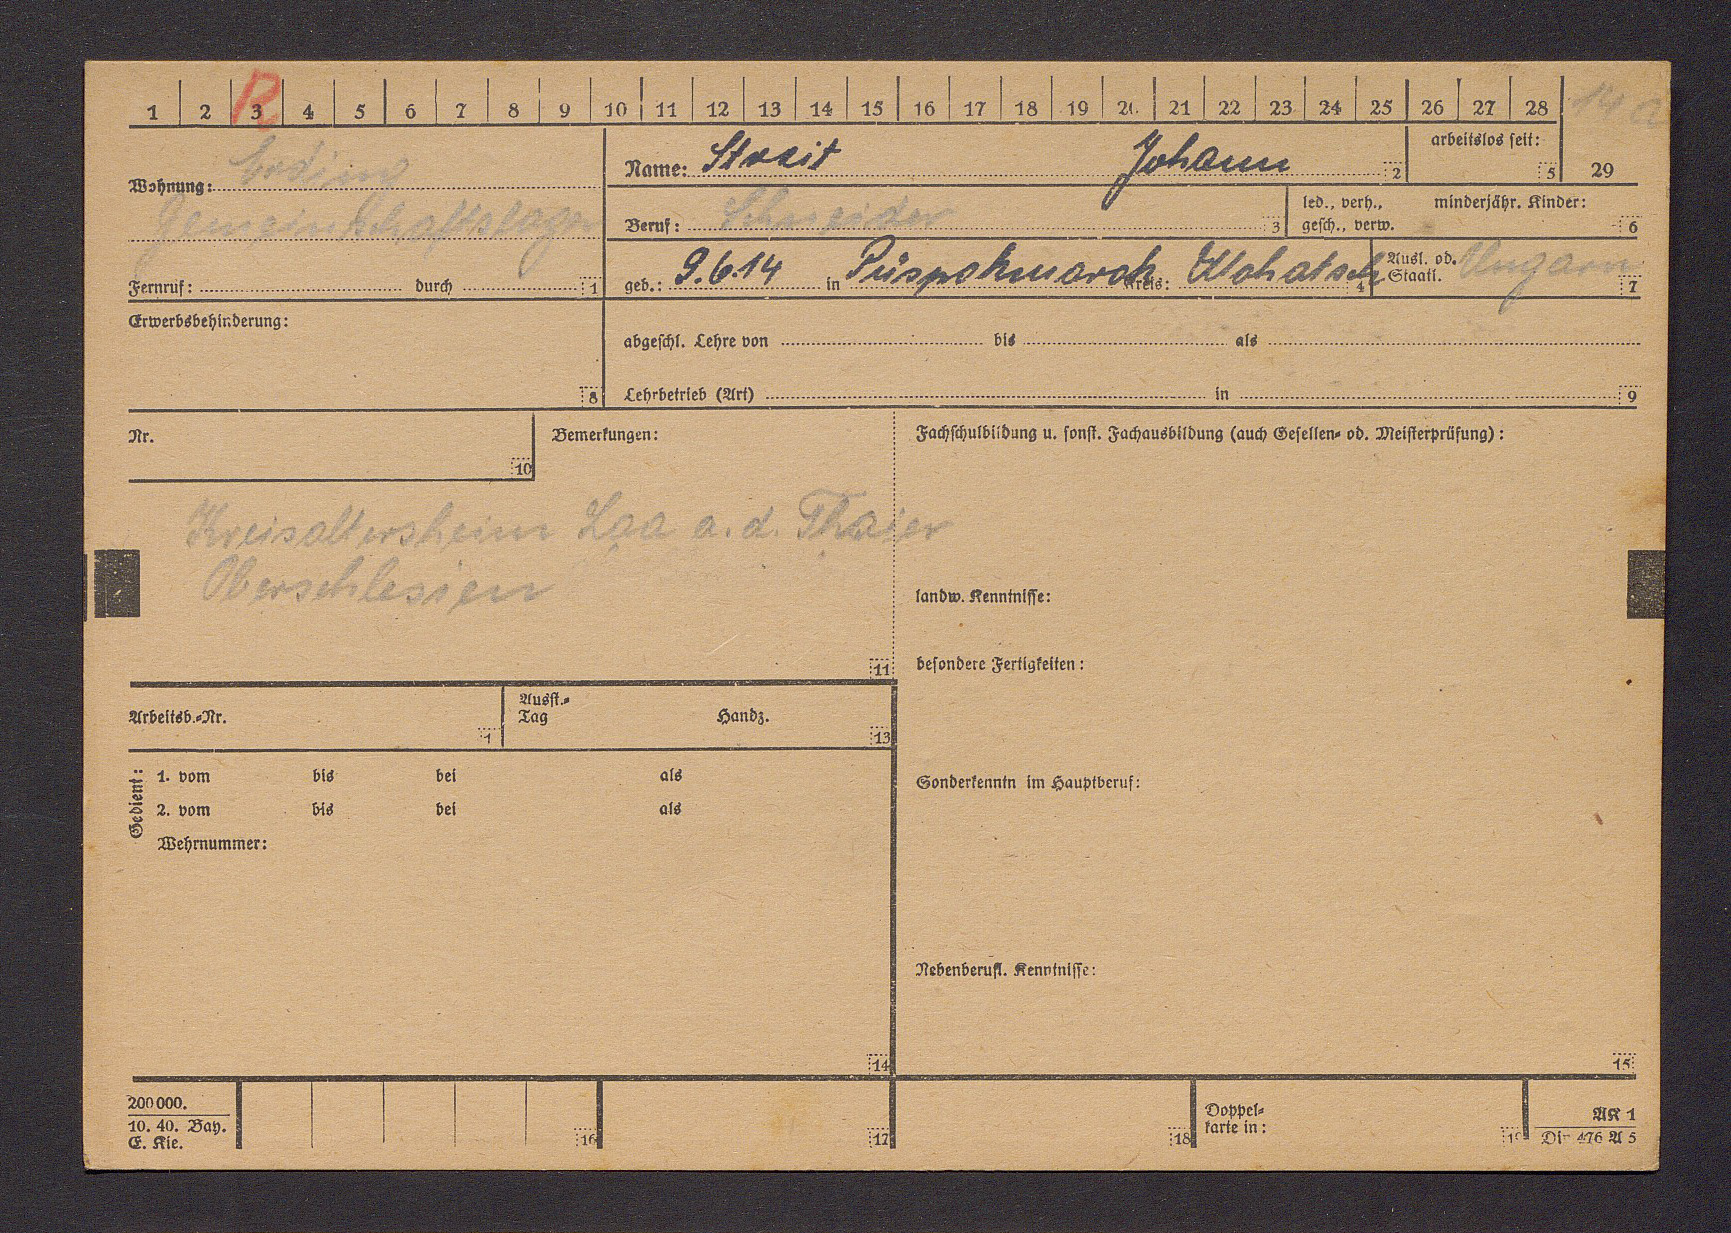 1 2 3 4 5 6 7 8 9 10 11 12 13 14 15 16 17 18 19 20 21 22 23 24 25 26 27 28 29
R
14 a
Wohnung: Erding
Gemeinschaftslager
Fernruf: durch 1
Name: Streit Johann 2
arbeitslos seit: 5
Beruf: Schneider 3
led., verh., gesch., verw.
minderjähr. Kinder: 6
geb.: 9.6.14 in Püspokmarok Kreis: Mohatsch 4
Ausl. od. Staatl. Ungarn 7
Erwerbsbehinderung: 8
abgeschl. Lehre von bis als
Lehrbetrieb (Art) in 9
Nr. 10
Bemerkungen:
Kreisaltersheim Laa a. d. Thaier
Oberschlesien
11
Fachschulbildung u. sonst. Fachausbildung (auch Gesellen- od. Meisterprüfung):
landw. Kenntnisse:
besondere Fertigkeiten:
Arbeitsb.-Nr. 1
Ausst.-Tag Handz. 13
Gedient:
1. vom bis bei als
2. vom bis bei als
Wehrnummer:
14
Sonderkenntn im Hauptberuf:
Nebenberufl. Kenntnisse:
15
200 000.
10. 40. Bay.
E. Kie.
16 17 18
Doppel-
karte in:
AK 1
Din 476 A 5